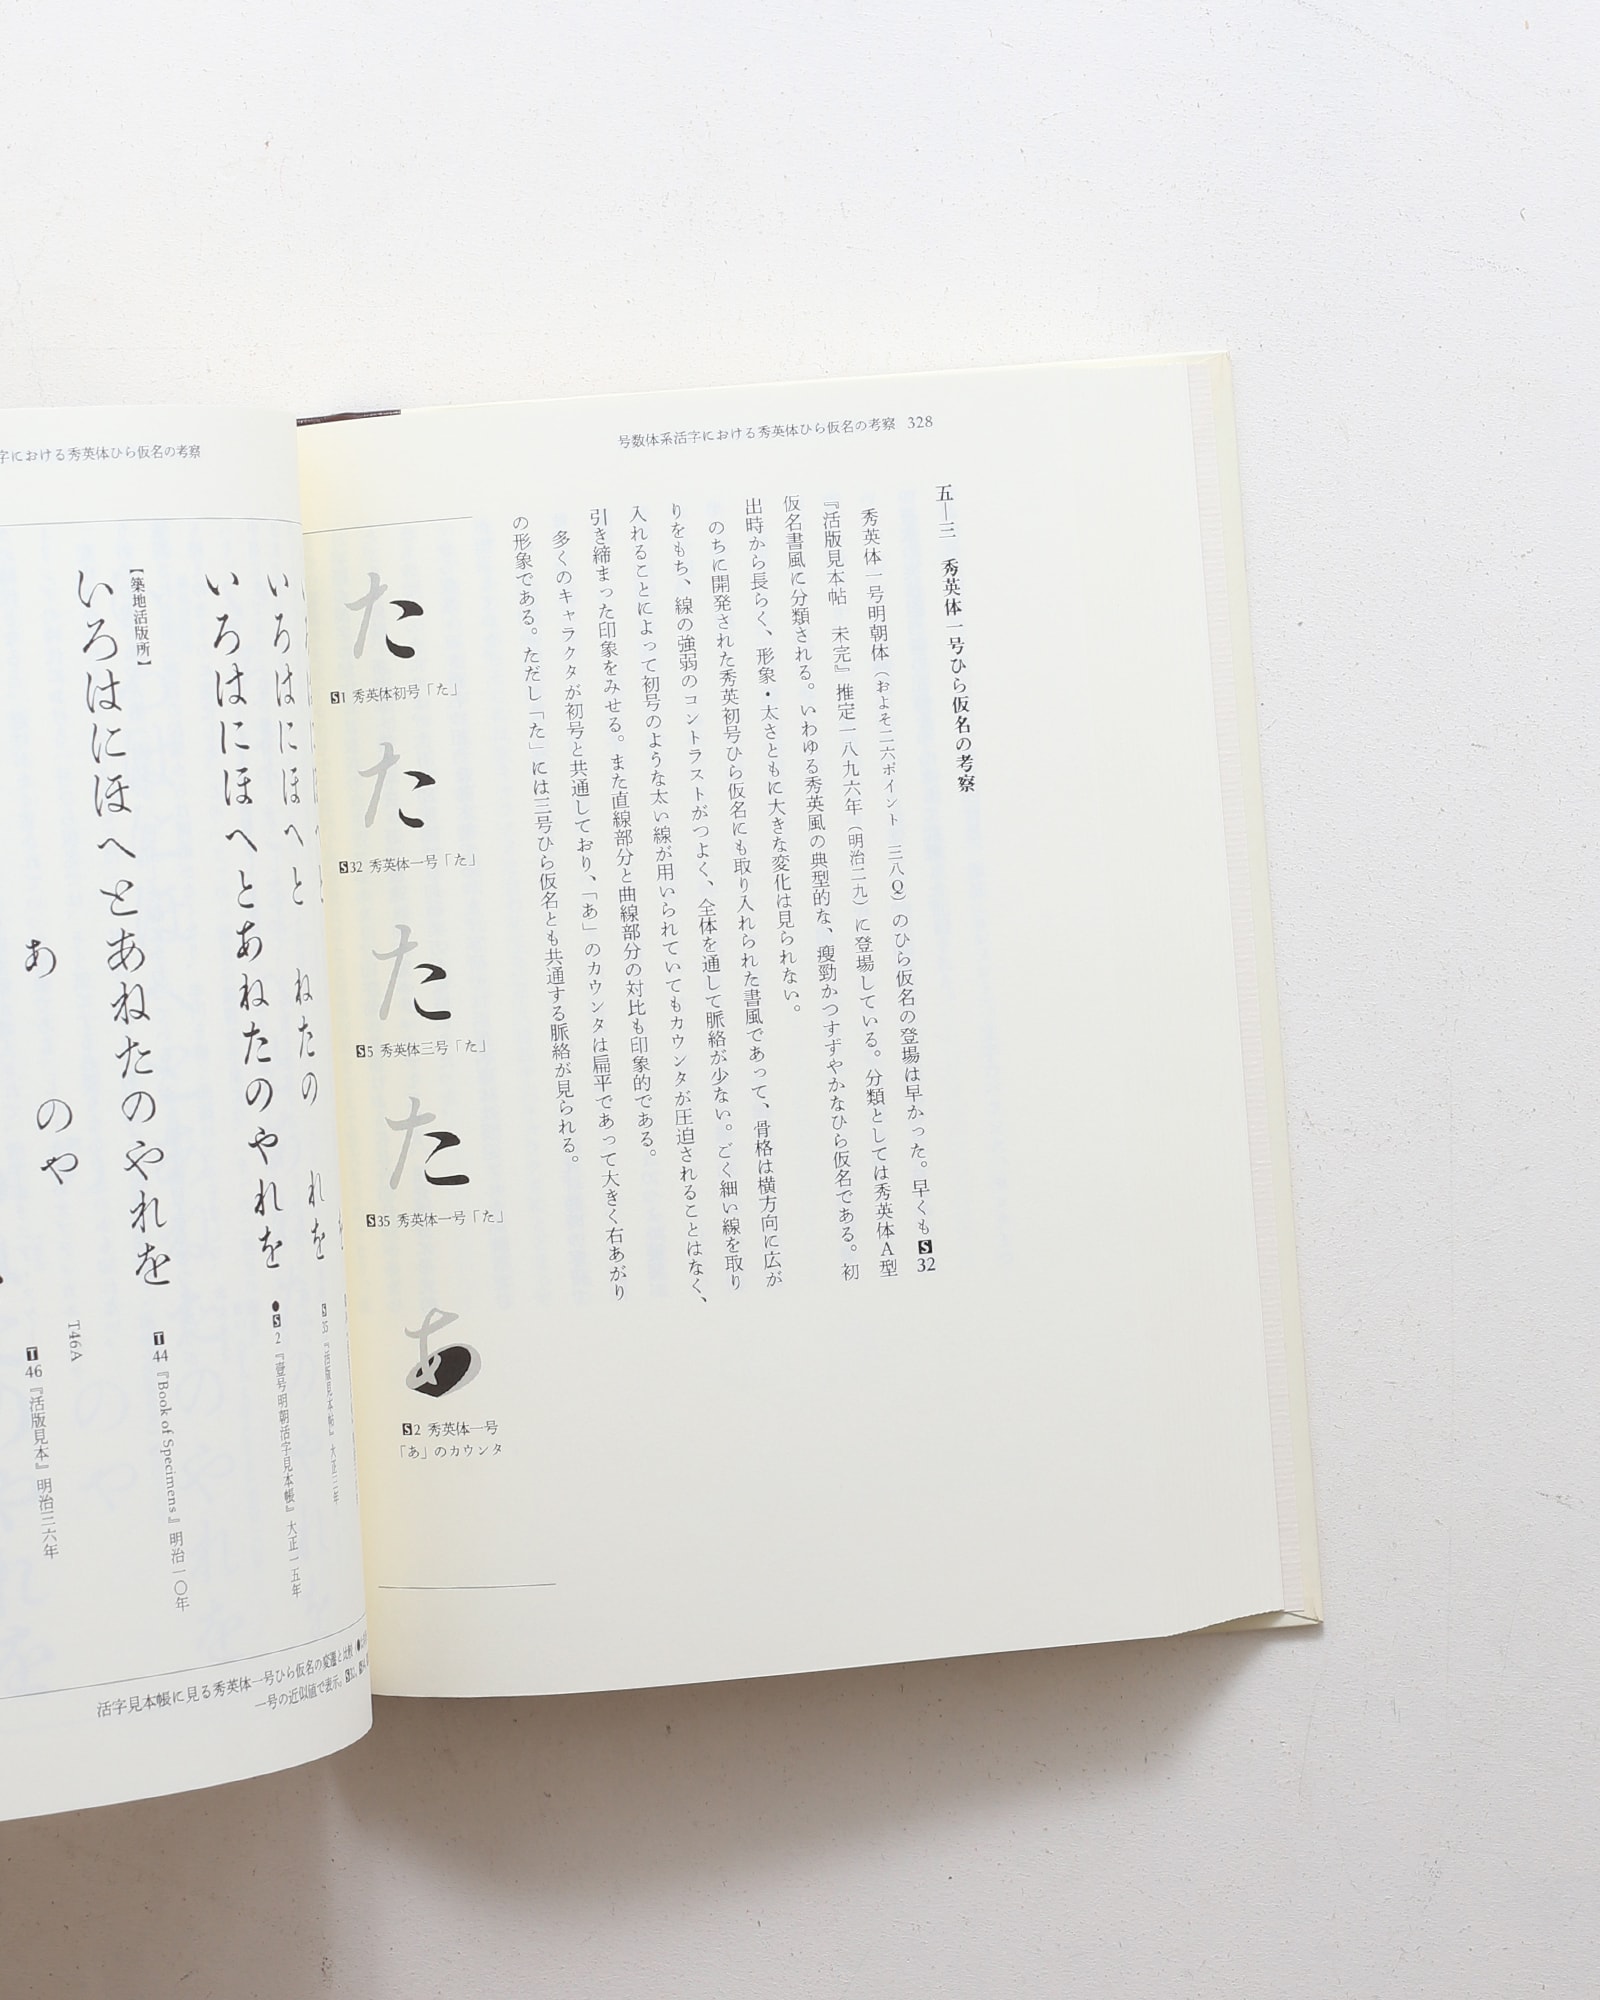 号数体系活字における秀英体ひら仮名の考察 328
五—三 秀英体一号ひら仮名の考察
秀英体一号明朝体（およそ二六ポイント 三八Q）のひら仮名の登場は早かった。早くもS32
『活版見本帖 未完』推定一八九六年（明治二九）に登場している。分類としては秀英体A型
仮名書風に分類される。いわゆる秀英風の典型的な、痩勁かつすずやかなひら仮名である。初
出時から長らく、形象・太さともに大きな変化は見られない。
のちに開発された秀英初号ひら仮名にも取り入れられた書風であって、骨格は横方向に広が
りをもち、線の強弱のコントラストがつよく、全体を通して脈絡が少ない。ごく細い線を取り
入れることによって初号のような太い線が用いられていてもカウンタが圧迫されることはなく、
引き締まった印象をみせる。また直線部分と曲線部分の対比も印象的である。
多くのキャラクタが初号と共通しており、「あ」のカウンタは扁平であって大きく右あがり
の形象である。ただし「た」には三号ひら仮名とも共通する脈絡が見られる。
た
S1 秀英体初号「た」
た
S32 秀英体一号「た」
た
S5 秀英体三号「た」
た
S35 秀英体一号「た」
あ
S2 秀英体一号
「あ」のカウンタ
字における秀英体ひら仮名の考察
いろはにほへと ねたの れを
S35『活版見本帖』大正三年
いろはにほへとあねたのやれを
●S2『壹号明朝活字見本帳』大正一五年
【築地活版所】
いろはにほへとあねたのやれを
T44『Book of Specimens』明治一〇年
あ のや
T46A
T46『活版見本』明治三六年
活字見本帳に見る秀英体一号ひら仮名の変遷と比較
一号の近似値で表示。